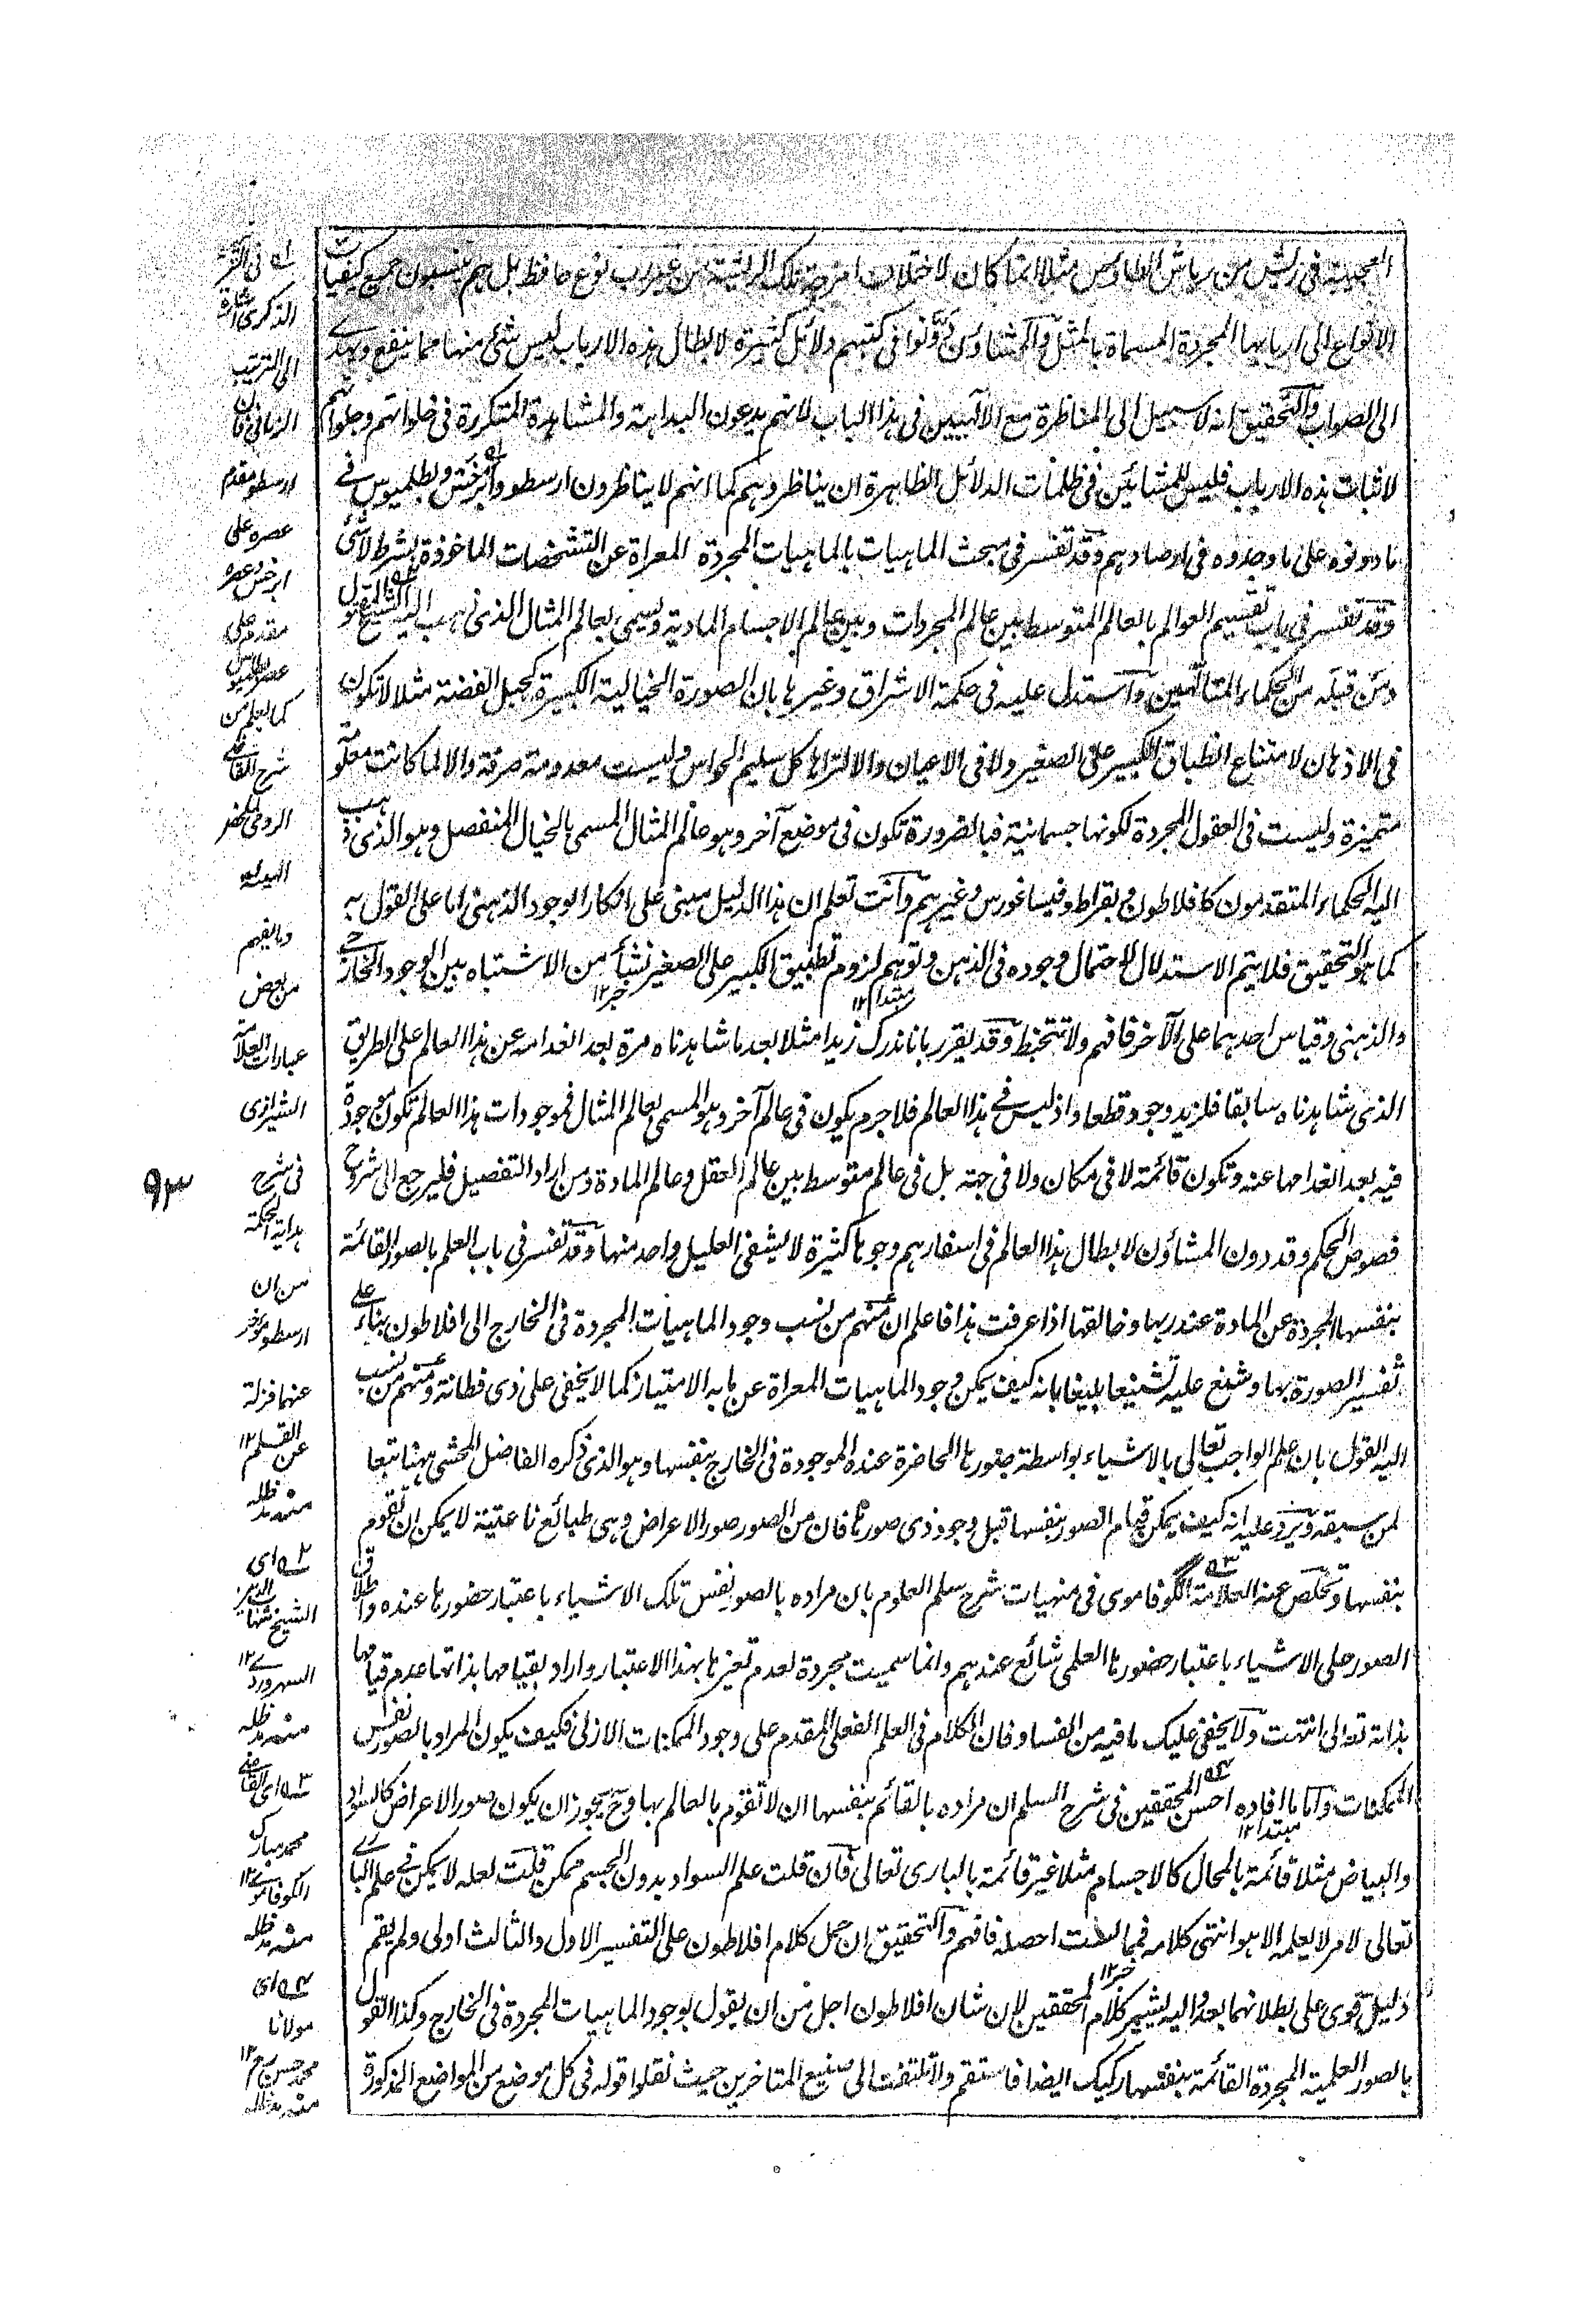 العجيبة فى ريش من رياش الطاوس مثلا انما كان لاختلاف امزجة تلك الريشة من غير رب نوع حافظ بل هم ينسبون جميع كيفيات
الانواع الى اربابها المجردة المسماة بالمثل والمشاؤن دونوا فى كتبهم دلائل كثيرة لابطال هذه الارباب ليس شئ منها مما ينفع ويهدے
الى الصواب والتحقيق انه لا سبيل الى المناظرة مع الآلهيين فى هذا الباب لانهم يدعون البداهة والمشاهدة المتكررة فى خلواتهم وجلواتهم
لاثبات هذه الارباب فليس للمشائين فى ظلمات الدلائل الظاهرة ان يناظروهم كما انهم لا يناظرون ارسطو وابرخس وبطلميوس فے
ما دونوه على ما وجدوه فى ارصادهم وقد تفسر فى مبحث الماهيات بالماهيات المجردة المعراة عن التشخصات الماخوذة بشرط لا شئ
وقد تفسر فى باب تقسيم العوالم بالعالم المتوسط بين عالم المجردات وبين عالم الاجسام المادية ويسمى بعالم المثال الذى ذهب اليه الشيخ المقتول
ومن قبله من الحكماء المتالهين واستدل عليه فى حكمة الاشراق وغيرها بان الصورة الخيالية الكبيرة كجبل الفضة مثلا لا تكون
فى الاذهان لامتناع انطباق الكبير على الصغير ولا فى الاعيان والا لتراها كل سليم الحواس وليست معدومة صرفة والا لما كانت معلومة
متميزة وليست فى العقول المجردة لكونها جسمانية فبالضرورة تكون فى موضع آخر وهو عالم المثال المسمى بالخيال المنفصل وهو الذى ذهب
اليه الحكماء المتقدمون كافلاطون وبقراط وفيساغورس وغيرهم وانت تعلم ان هذا الدليل مبنى على انكار الوجود الذهنى اما على القول به
كما هو التحقيق فلا يتم الاستدلال لاحتمال وجوده فى الذهن وتوهم لزوم تطبيق الكبير على الصغير نشأ من الاشتباه بين الوجود الخارجے
مبتدا ١٢ خبر ١٢
والذهنى وقياس احدهما على الآخر فافهم ولا تتخبط وقد يقرر بانا ندرك زيدا مثلا بعد ما شاهدناه مرة بعد انعدامه عن هذا العالم على الطريق
الذى شاهدناه سابقا فلزيد وجود قطعا واذ ليس فے هذا العالم فلا جرم يكون فى عالم آخر وهو المسمى بعالم المثال فموجودات هذا العالم تكون موجودة
فيه بعد انعدامها عنه وتكون قائمة لا فى مكان ولا فى جهة بل فى عالم متوسط بين عالم العقل وعالم المادة ومن اراد التفصيل فليرجع الى شروح
فصوص الحكم وقد دون المشاؤن لابطال هذا العالم فى اسفارهم وجوها كثيرة لا يشفى العليل واحد منها وقد تفسر فى باب العلم بالصور القائمة
بنفسها المجردة عن المادة عند ربها وخالقها اذا عرفت هذا فاعلم ان منهم من نسب وجود الماهيات المجردة فى الخارج الى افلاطون بناء علے
تفسير الصورة بها وشنع عليه تشنيعا بليغا بانه كيف يمكن وجود الماهيات المعراة عن ما به الامتياز كما لا يخفى على ذى فطانة ومنهم من نسب
اليه القول بان علم الواجب تعالى بالاشياء بواسطة صورها الحاضرة عنده الموجودة فى الخارج بنفسها وهو الذى ذكره الفاضل المحشى ههنا تبعا
لمن سبقه ويرد عليه انه كيف يمكن قيام الصور بنفسها قبل وجود ذى صورها فان من الصور صور الاعراض وهى طبائع ناعتية لا يمكن ان تقوم
بنفسها وتخلص عنه العلامة الگوفاموى فى منهيات شرح سلم العلوم بان مراده بالصور نفس تلك الاشياء باعتبار حضورها عنده واطلاق
الصور على الاشياء باعتبار حضورها العلمى شائع عندهم وانما سميت مجردة لعدم تغيرها بهذا الاعتبار واراد بقيامها بذاتها عدم قيامها
بذاته تعالى انتهت ولا يخفى عليك ما فيه من الفساد فان الكلام فى العلم الفعلى المقدم على وجود الممكنات الازلى فكيف يكون المراد بالصور نفس
الممكنات واما ما افاده احسن المحققين فى شرح السلم ان مراده بالقائم بنفسها ان لا تقوم بالعالم بها وح يجوز ان يكون صور الاعراض كالسواد
مبتدا ١٢
والبياض مثلا قائمة بالمحال كالاجسام مثلا غير قائمة بالبارى تعالى فان قلت علم السواد بدون الجسم ممكن قلت لعله لا يمكن فے علم البارے
تعالى لامر لا يعلمه الا هو انتهى كلامه فمما لست احصله فافهم والتحقيق ان حمل كلام افلاطون على التفسير الاول والثالث اولى ولم يقم
خبر ١٢
دليل قوى على بطلانهما بعد واليه يشير كلام المحققين لان شان افلاطون اجل من ان يقول بوجود الماهيات المجردة فى الخارج وكذا القول
بالصور العلمية المجردة القائمة بنفسها ركيك ايضا فاستقم ولا تلتفت الى صنيع المتاخرين حيث نقلوا قوله فى كل موضع من المواضع المذكورة
له فى
الذكرى اشارة
الى الترتيب
الزمانى فان
ارسطو مقدم
عصره على
ابرخس وعصره
مقدم على
عصر بطلميوس
كما يعلم من
شرح القاضے
الرومى للملخص
الهيئة
وما يفهم
من بعض
عبارات العلامة
الشيرازى
فى شرح
هداية الحكمة
من ان
ارسطو مؤخر
عنهما فزلة
عن القلم ١٢
منه مد ظله
٢ه اى
الشيخ شهاب الدين
السهروردے ١٢
منه مد ظله
٣ه اى القاضے
محمد مبارك
الگوفاموے ١٢
منه مد ظله
٤ه اى
مولانا
محمد حسن مرحوم ١٢
منه مد ظله
٩٣